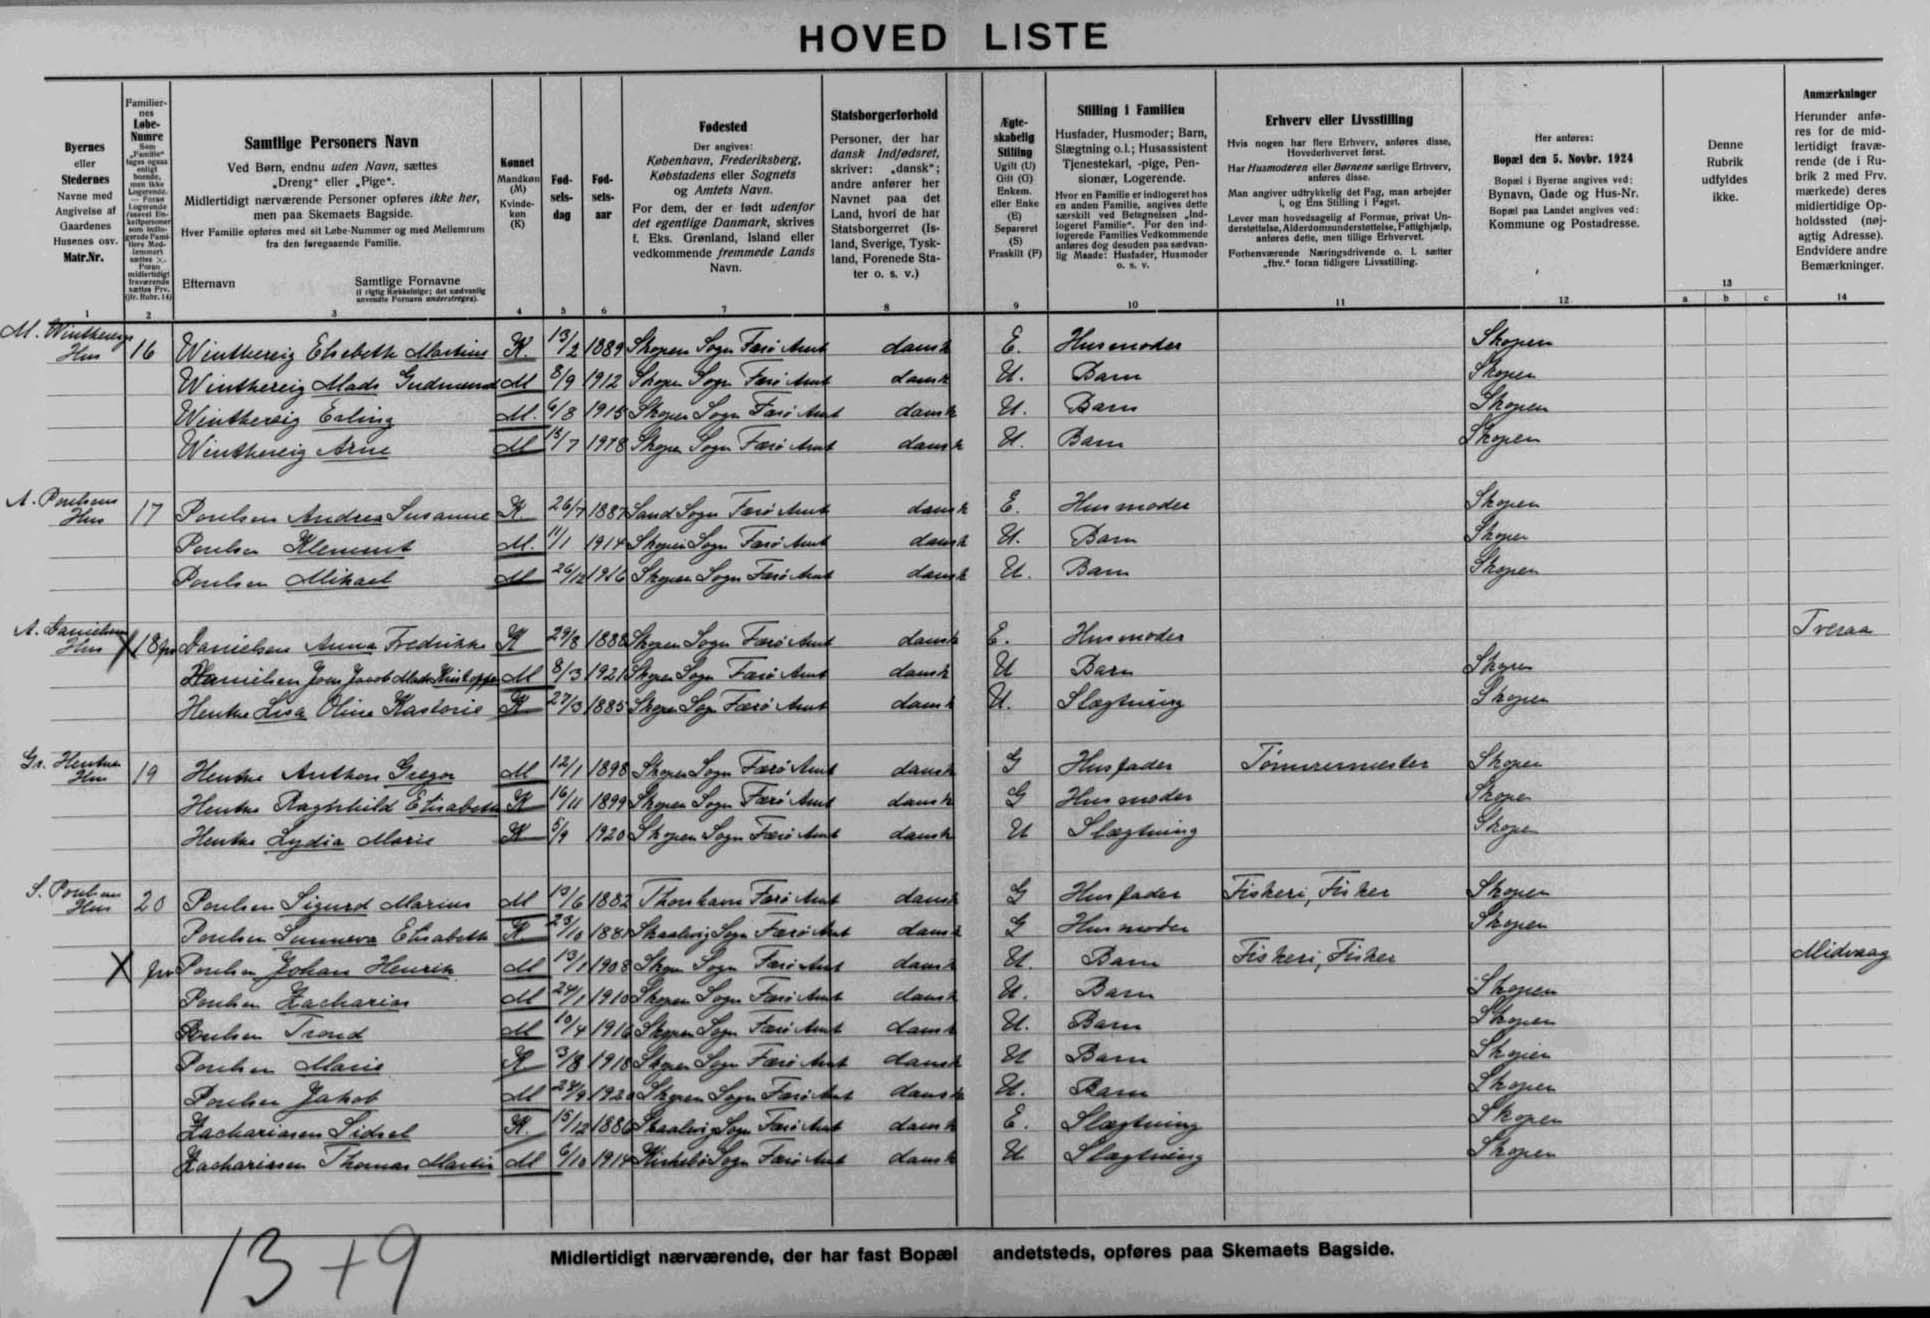 HOVED LISTE
Byernes
eller
Stedernes
Navne med
Angivelse af
Gaardenes
Husenes osv.
Matr.Nr.
Familier-
nes
Løbe-
Numre
Samtlige Personers Navn
Ved Børn, endnu uden Navn, sættes
„Dreng“ eller „Pige“.
Midlertidigt nærværende Personer opføres ikke her,
men paa Skemaets Bagside.
Hver Familie opføres med sit Løbe-Nummer og med Mellemrum
fra den foregaaende Familie.
Efternavn Samtlige Fornavne
(i rigtig Rækkefølge; det sædvanlig
anvendte Fornavn understreges).
Kønnet
Mandkøn
(M)
Kvinde-
køn
(K)
Fød-
sels-
dag
Fød-
sels-
aar
Fødested
Der angives:
København, Frederiksberg,
Købstadens eller Sognets
og Amtets Navn.
For dem, der er født udenfor
det egentlige Danmark, skrives
f. Eks. Grønland, Island eller
vedkommende fremmede Lands
Navn.
Statsborgerforhold
Personer, der har
dansk Indfødsret,
skriver: „dansk“;
andre anfører her
Navnet paa det
Land, hvori de har
Statsborgerret (Is-
land, Sverige, Tysk-
land, Forenede Sta-
ter o. s. v.)
Ægte-
skabelig
Stilling
Ugift (U)
Gift (G)
Enkem.
eller Enke
(E)
Separeret
(S)
Fraskilt (F)
Stilling i Familien
Husfader, Husmoder; Barn,
Slægtning o.l.; Husassistent
Tjenestekarl, -pige, Pen-
sionær, Logerende.
Hvor en Familie er indlogeret hos
en anden Familie, angives dette
særskilt ved Betegnelsen „Ind-
logeret Familie“. For den ind-
logerede Families Vedkommende
anføres dog desuden paa sædvan-
lig Maade: Husfader, Husmoder
o. s. v.
Erhverv eller Livsstilling
Hvis nogen har flere Erhverv, anføres disse,
Hovederhvervet først.
Har Husmoderen eller Børnene særlige Erhverv,
anføres disse.
Man angiver udtrykkelig det Fag, man arbejder
i, og Ens Stilling i Faget.
Lever man hovedsagelig af Formue, privat Un-
derstøttelse, Alderdomsunderstøttelse, Fattighjælp,
anføres dette, men tillige Erhvervet.
Forhenværende Næringsdrivende o. l. sætter
„fhv.“ foran tidligere Livsstilling.
Her anføres:
Bopæl den 5. Novbr. 1924
Bopæl i Byerne angives ved:
Bynavn, Gade og Hus-Nr.
Bopæl paa Landet angives ved:
Kommune og Postadresse.
Denne
Rubrik
udfyldes
ikke.
Anmærkninger
Herunder anfø-
res for de mid-
lertidigt fravæ-
rende (de i Ru-
brik 2 med Frv.
mærkede) deres
midlertidige Op-
holdssted (nøj-
agtig Adresse).
Endvidere andre
Bemærkninger.
1 2 3 4 5 6 7 8 9 10 11 12 13 a b c 14
M. Wintherigs Hus 16 Winthereig Elsebeth Martine K. 13/2 1889 Skopen Sogn Færø Amt dansk E. Husmoder Skopen
Winthereig Mads Gudmund M 8/9 1912 Skopen Sogn Færø Amt dansk U. Barn Skopen
Winthereig Erling M. 6/8 1915 Skopen Sogn Færø Amt dansk U. Barn Skopen
Winthereig Arne M 13/7 1918 Skopen Sogn Færø Amt dansk U. Barn Skopen
A. Poulsens Hus 17 Poulsen Andrea Susanne K. 26/7 1887 Sand Sogn Færø Amt dansk E. Husmoder Skopen
Poulsen Klement M. 11/1 1914 Skopen Sogn Færø Amt dansk U. Barn Skopen
Poulsen Mikael M 26/12 1916 Skopen Sogn Færø Amt dansk U. Barn Skopen
A. Danielsens Hus X 18 frv Danielsen Anna Fredrikke K 29/8 1888 Skopen Sogn Færø Amt dansk E. Husmoder Tveraa
Danielsen Jens Jacob Mads Kristoffer M 8/3 1921 Skopen Sogn Færø Amt dansk U Barn Skopen
Hentze Lisa Oline Kastorie K 27/3 1885 Skopen Sogn Færø Amt dansk U. Slægtning Skopen
Gr. Hentzes Hus 19 Hentze Anthon Gregor M 12/1 1898 Skopen Sogn Færø Amt dansk G Husfader Tømmermester Skopen
Hentze Raghhild Elisabeth K 16/11 1899 Skopen Sogn Færø Amt dansk G Husmoder Skopen
Hentze Lydia Marie K 5/9 1920 Skopen Sogn Færø Amt dansk U Slægtning Skopen
S. Poulsens Hus 20 Poulsen Sigurd Marius M 13/6 1882 Thorshavn Færø Amt dansk G Husfader Fiskeri, Fisker Skopen
Poulsen Sunneva Elisabeth K 23/10 1881 Skaalevig Sogn Færø Amt dansk G Husmoder Skopen
X frv Poulsen Johan Henrik M 13/1 1908 Skopen Sogn Færø Amt dansk U. Barn Fiskeri, Fisker Midvaag
Poulsen Zacharias M 24/1 1910 Skopen Sogn Færø Amt dansk U. Barn Skopen
Poulsen Trond M 10/4 1916 Skopen Sogn Færø Amt dansk U. Barn Skopen
Poulsen Marie K 3/8 1918 Skopen Sogn Færø Amt dansk U Barn Skopen
Poulsen Jakob M 24/9 1920 Skopen Sogn Færø Amt dansk U. Barn Skopen
Zachariasen Sidsel K. 15/12 1886 Skaalevig Sogn Færø Amt dansk E. Slægtning Skopen
Zachariasen Thomas Martin M 6/10 1914 Kirkebø Sogn Færø Amt dansk U Slægtning Skopen
13+9
Midlertidigt nærværende, der har fast Bopæl andetsteds, opføres paa Skemaets Bagside.